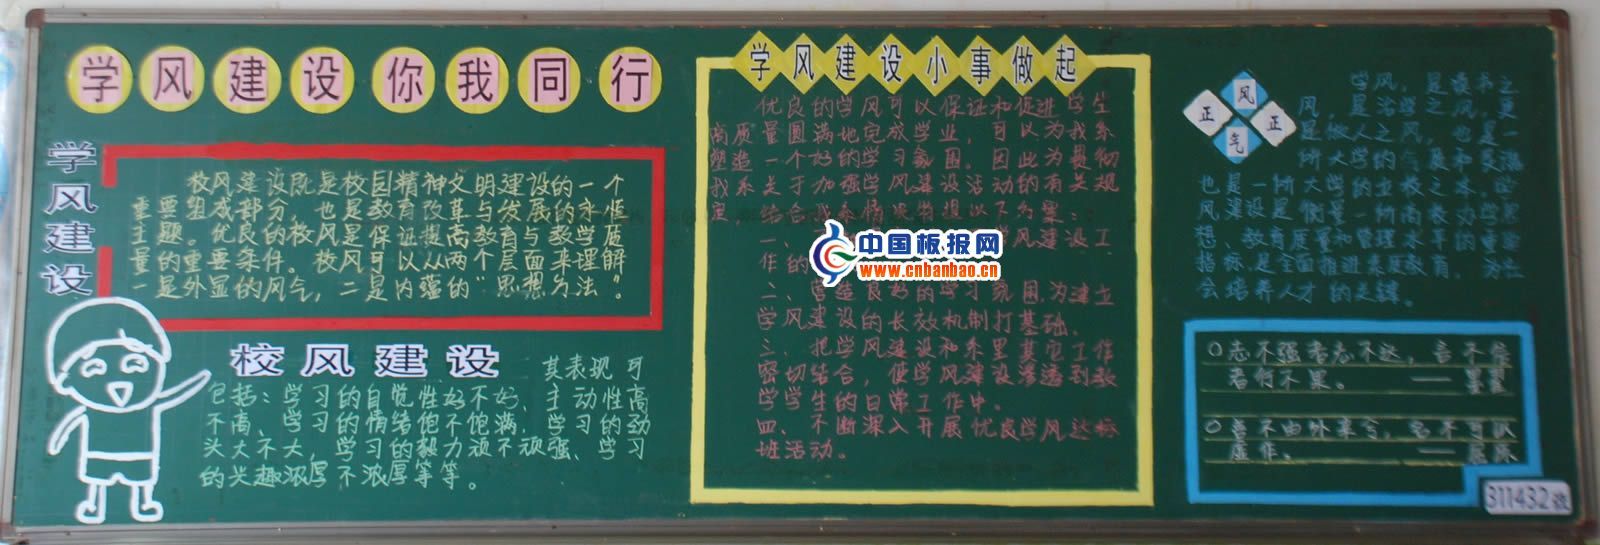 学风建设你我同行
学风建设
校风建设既是校园精神文明建设的一个
重要组成部分，也是教育改革与发展的永恒
主题。优良的校风是保证提高教育与教学质
量的重要条件。校风可以从两个层面来理解
一是外显的风气，二是内蕴的“思想方法”。
校风建设
其表现可
包括：学习的自觉性好不好、主动性高
不高、学习的情绪饱不饱满，学习的劲
头大不大，学习的毅力顽不顽强、学习
的兴趣浓厚不浓厚等等。
学风建设小事做起
优良的学风可以保证和促进学生
高质量圆满地完成学业，可以为我系
塑造一个好的学习氛围，因此为贯彻
我系关于加强学风建设活动的有关规
定，结合我系情况特提以下方案：
一、 学风建设工
作的
二、营造良好的学习氛围，为建立
学风建设的长效机制打基础。
三、把学风建设和系里其它工作
密切结合，使学风建设渗透到教
学学生的日常工作中。
四、不断深入开展优良学风达标
班活动。
中国板报网
www.cnbanbao.cn
正风正气
学风，是读书之
风，是治学之风，更
是做人之风，也是一
所大学的气质和灵魂
也是一所大学的立校之本，学
风建设是衡量一所高校办学思
想、教育质量和 水平的重要
指标，是全面推进 教育，为社
会培养人才的关键。
志不强者志不达，言不信
者行不果。 ——墨翟
善不由外来兮，名不可以
虚作。 ——屈原
311432班